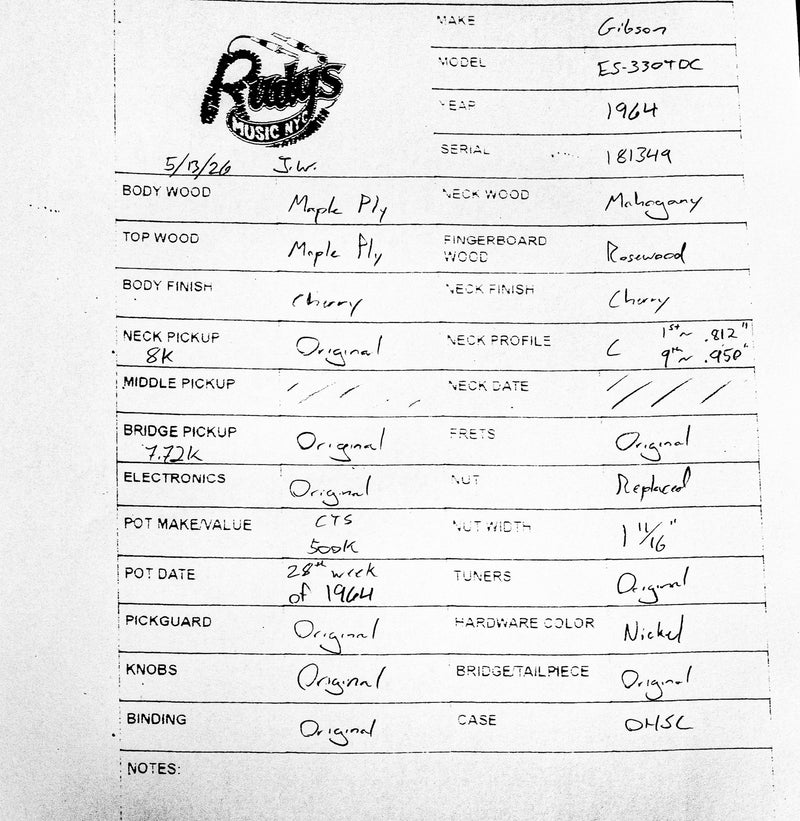 Rudy's
MUSIC NYC
5/13/26 J.W.
MAKE Gibson
MODEL ES-330TDC
YEAR 1964
SERIAL 181349
BODY WOOD Maple Ply NECK WOOD Mahogany
TOP WOOD Maple Ply FINGERBOARD WOOD Rosewood
BODY FINISH Cherry NECK FINISH Cherry
NECK PICKUP 8K Original NECK PROFILE C 1st ~ .812"
9th ~ .950"
MIDDLE PICKUP / / / NECK DATE / / / /
BRIDGE PICKUP 7.72K Original FRETS Original
ELECTRONICS Original NUT Replaced
POT MAKE/VALUE CTS 500K NUT WIDTH 1 11/16"
POT DATE 28th week of 1964 TUNERS Original
PICKGUARD Original HARDWARE COLOR Nickel
KNOBS Original BRIDGE/TAILPIECE Original
BINDING Original CASE OHSC
NOTES: